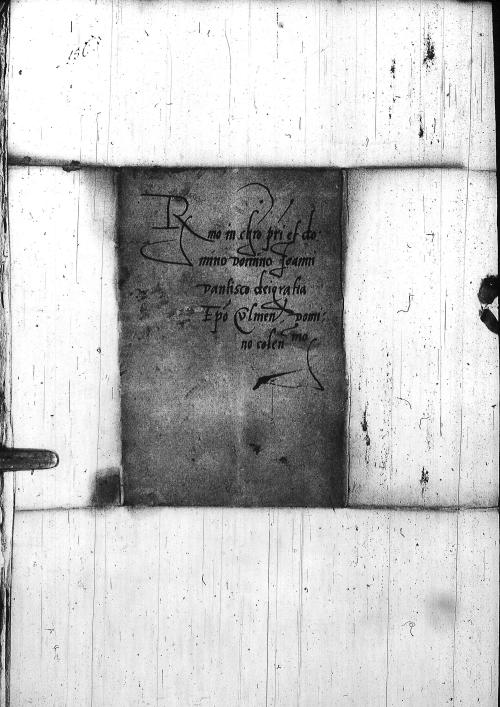 Rmo in chro pri et do
mino domino Joanni
Dantisco dei gratia
Epo Culmen. Domi:
no colen mo